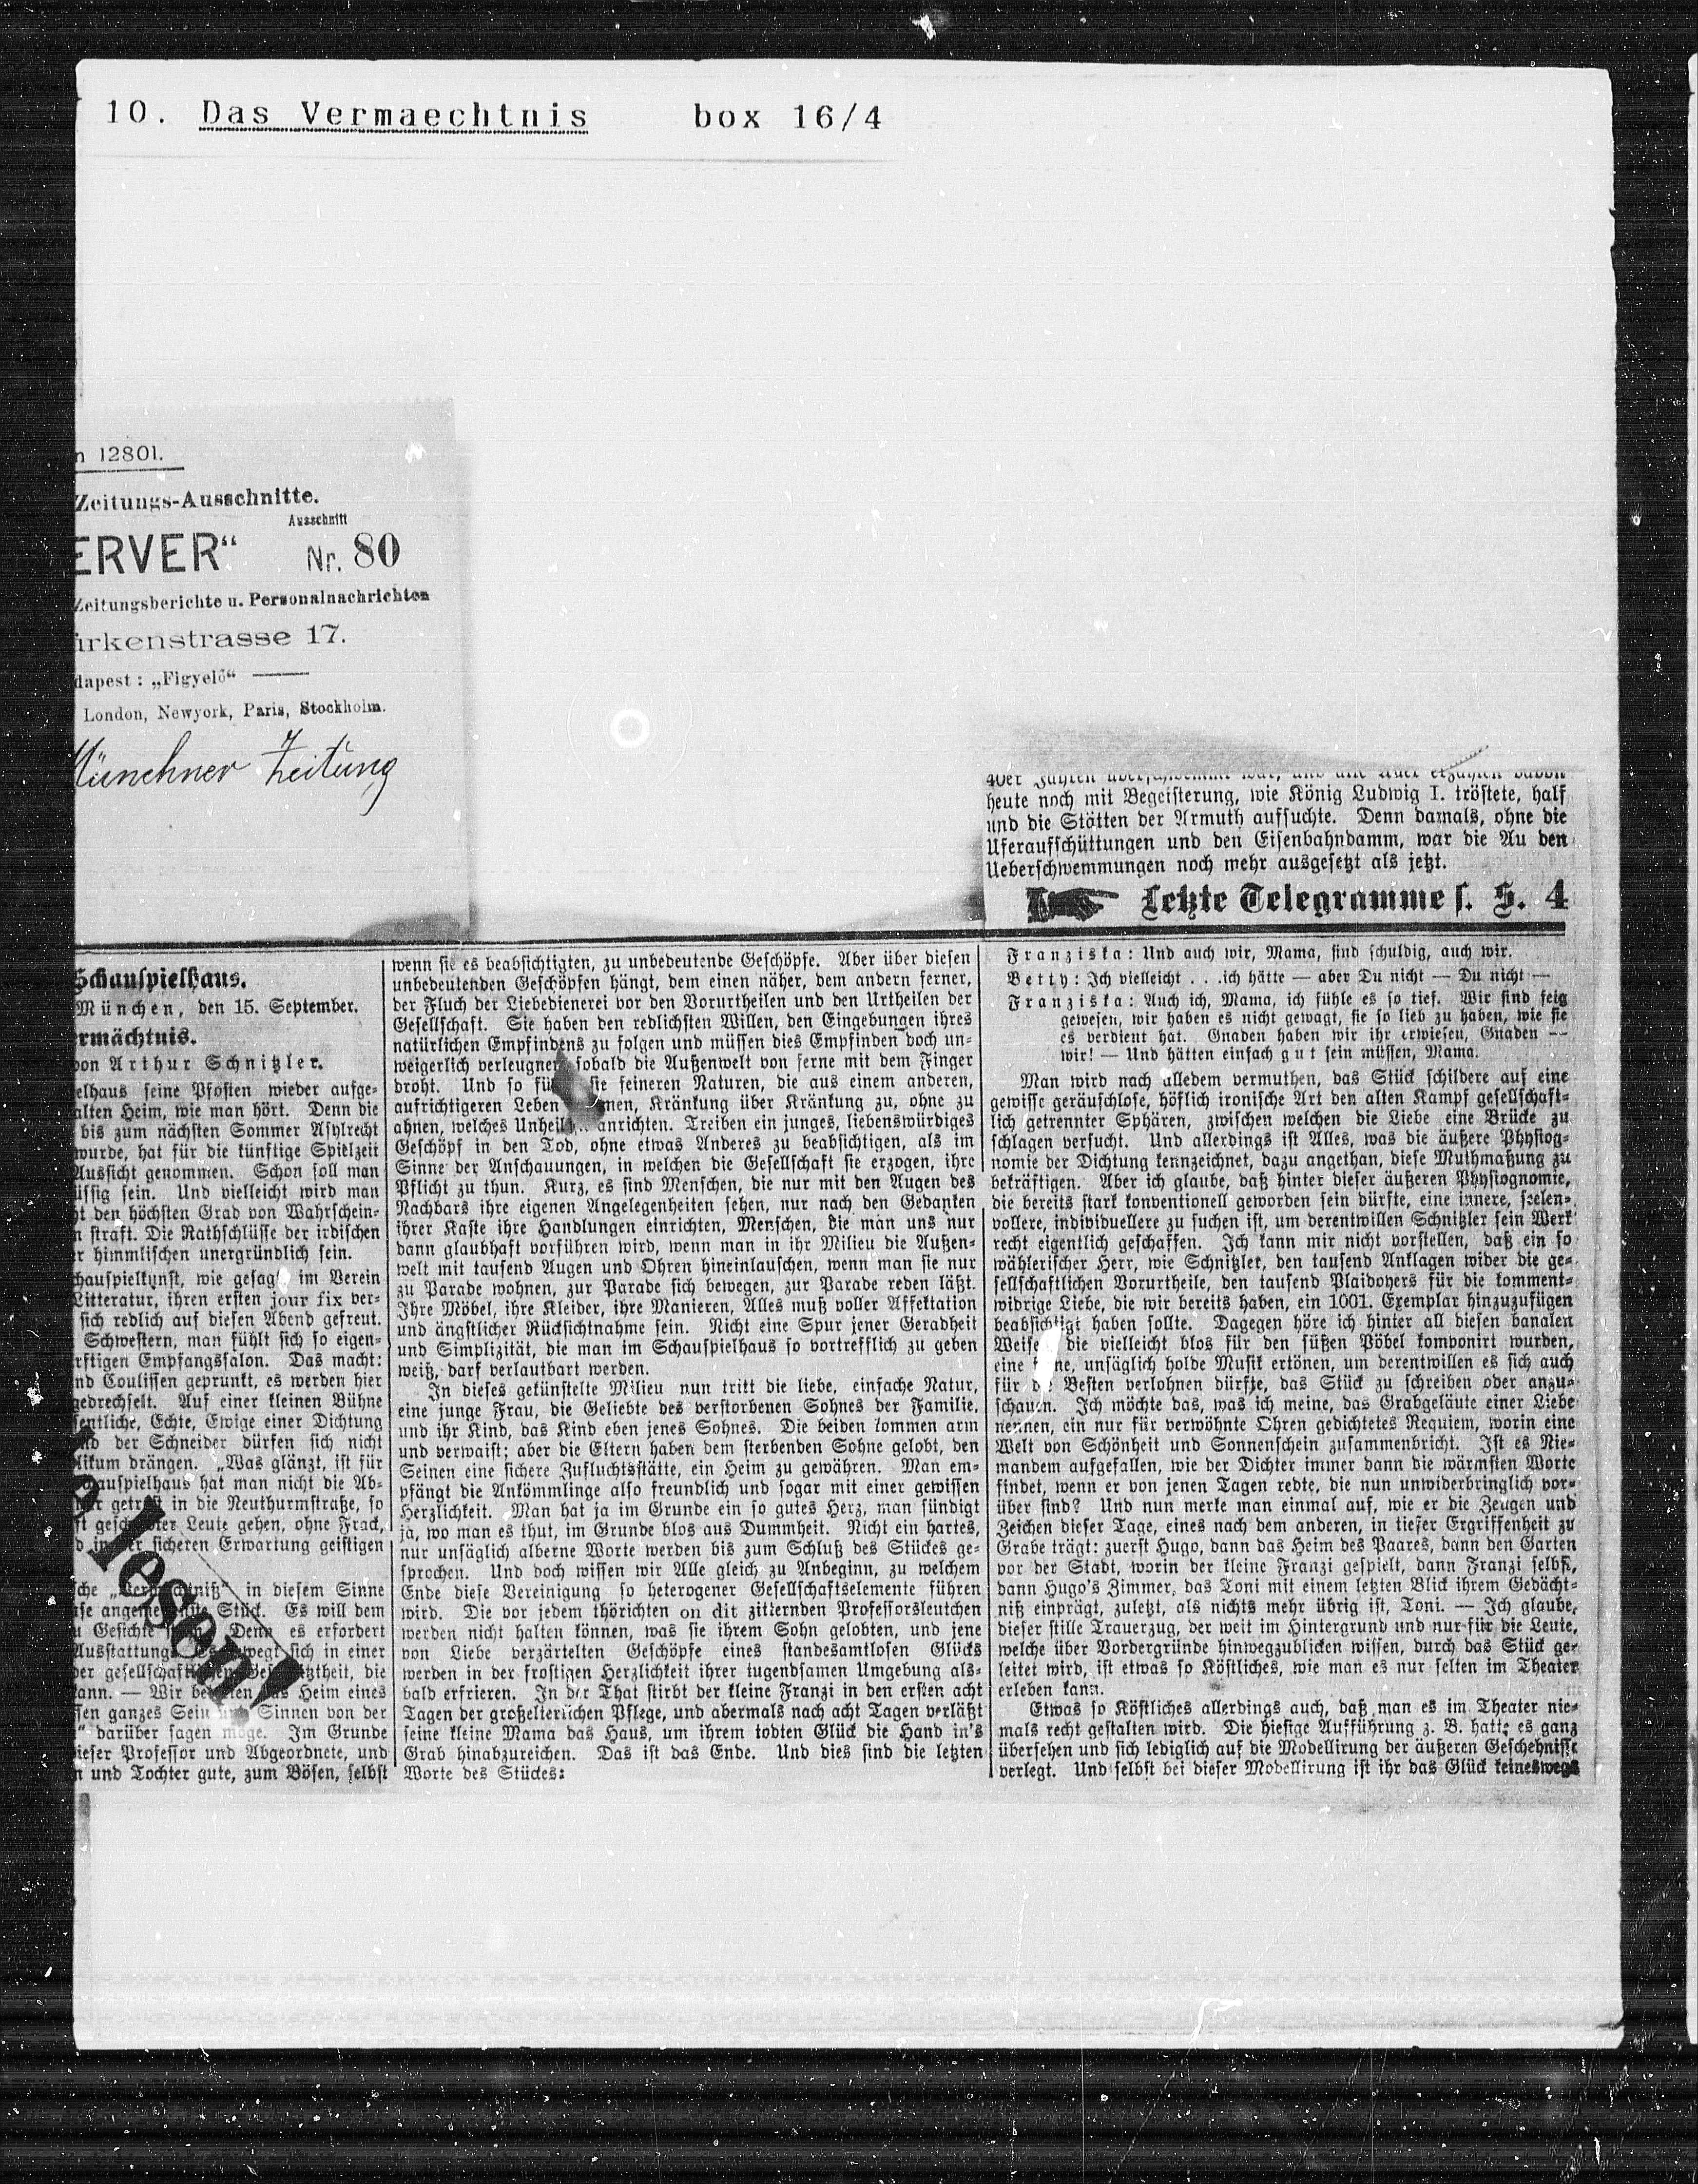 10. Das Vermaechtnis box 16/4
n 12801.
Zeitungs-Ausschnitte.
Ausschnitt
ERVER“ Nr. 80
Zeitungsberichte u. Personalnachrichten
irkenstrasse 17.
dapest: „Figyelő“
London, Newyork, Paris, Stockholm.
Münchner Zeitung
heute noch mit Begeisterung, wie König Ludwig I. tröstete, half
und die Stötten der Armuth aufsuchte. Denn damals, ohne die
Uferaufschüttungen und den Eisenbahndamm, war die Au den
Ueberschwemmungen noch mehr ausgesetzt als jetzt.
Letzte Telegramme s. S. 4
Schauspielhaus.
München, den 15. September.
rmächtnis.
von Arthur Schnitzler.
elhaus seine Pfosten wieder aufge-
alten Heim, wie man hört. Denn die
bis zum nächsten Sommer Asylrecht
wurde, hat für die künftige Spielzeit
Aussicht genommen. Schon soll man
üssig sein. Und vielleicht wird man
t den höchsten Grad von Wahrschein-
n straft. Die Rathschlüsse der irdischen
r himmlischen unergründlich sein.
hauspielkunst, wie gesagt im Verein
Litteratur, ihren ersten jour fix ver-
sich redlich auf diesen Abend gefreut.
Schwestern, man fühlt sich so eigen-
rftigen Empfangssalon. Das macht:
nd Coulissen geprunkt, es werden hier
gedrechselt. Auf einer kleinen Bühne
sentliche, Echte, Ewige einer Dichtung
nd der Schneider dürfen sich nicht
likum drängen. „Was glänzt, ist für
auspielhaus hat man nicht die Ab-
getrost in die Neuthurmstraße, so
Leute gehen, ohne Frack,
sicheren Erwartung geistigen
che in diesem Sinne
Stück. Es will dem
Denn es erfordert
Ausstattung. sich in einer
der die
ann. — Wir Heim eines
sen ganzes Sein und Sinnen von der
“ darüber sagen möge. Im Grunde
ieser Professor und Abgeordnete, und
n und Tochter gute, zum Bösen, selbst
lesen!
wenn sie es beabsichtigten, zu unbedeutende Geschöpfe. Aber über diesen
unbedeutenden Geschöpfen hängt, dem einen näher, dem andern ferner,
der Fluch der Liebedienerei vor den Vorurtheilen und den Urtheilen der
Gesellschaft. Sie haben den redlichsten Willen, den Eingebungen ihres
natürlichen Empfindens zu folgen und müssen dies Empfinden doch un-
weigerlich verleugnen sobald die Außenwelt von ferne mit dem Finger
droht. Und so sie feineren Naturen, die aus einem anderen,
aufrichtigeren Leben Kränkung über Kränkung zu, ohne zu
ahnen, welches Unheil anrichten. Treiben ein junges, liebenswürdiges
Geschöpf in den Tod, ohne etwas Anderes zu beabsichtigen, als im
Sinne der Anschauungen, in welchen die Gesellschaft sie erzogen, ihre
Pflicht zu thun. Kurz, es sind Menschen, die nur mit den Augen des
Nachbars ihre eigenen Angelegenheiten sehen, nur nach den Gedanken
ihrer Kaste ihre Handlungen einrichten, Menschen, die man uns nur
dann glaubhaft vorführen wird, wenn man in ihr Milieu die Außen-
welt mit tausend Augen und Ohren hineinlauschen, wenn man sie nur
zu Parade wohnen, zur Parade sich bewegen, zur Parade reden läßt.
Ihre Möbel, ihre Kleider, ihre Manieren, Alles muß voller Affektation
und ängstlicher Rücksichtnahme sein. Nicht eine Spur jener Geradheit
und Simplizität, die man im Schauspielhaus so vortrefflich zu geben
weiß, darf verlautbart werden.
In dieses gekünstelte Milieu nun tritt die liebe, einfache Natur,
eine junge Frau, die Geliebte des verstorbenen Sohnes der Familie,
und ihr Kind, das Kind eben jenes Sohnes. Die beiden kommen arm
und verwaist; aber die Eltern haben dem sterbenden Sohne gelobt, den
Seinen eine sichere Zufluchtsstätte, ein Heim zu gewähren. Man em-
pfängt die Ankömmlinge also freundlich und sogar mit einer gewissen
Herzlichkeit. Man hat ja im Grunde ein so gutes Herz, man sündigt
ja, wo man es thut, im Grunde blos aus Dummheit. Nicht ein hartes,
nur unsäglich alberne Worte werden bis zum Schluß des Stückes ge-
sprochen. Und doch wissen wir Alle gleich zu Anbeginn, zu welchem
Ende diese Vereinigung so heterogener Gesellschaftselemente führen
wird. Die vor jedem thörichten on dit zitternden Professorsleutchen
werden nicht halten können, was sie ihrem Sohn gelobten, und jene
von Liebe verzärtelten Geschöpfe eines standesamtlosen Glücks
werden in der frostigen Herzlichkeit ihrer tugendsamen Umgebung als-
bald erfrieren. In der That stirbt der kleine Franzi in den ersten acht
Tagen der großelterlichen Pflege, und abermals nach acht Tagen verläßt
seine kleine Mama das Haus, um ihrem todten Glück die Hand in's
Grab hinabzureichen. Das ist das Ende. Und dies sind die letzten
Worte des Stückes:
Franziska: Und auch wir, Mama, sind schuldig, auch wir.
Betty: Ich vielleicht . . .ich hätte — aber Du nicht — Du nicht —
Franziska: Auch ich, Mama, ich fühle es so tief. Wir sind feig
gewesen, wir haben es nicht gewagt, sie so lieb zu haben, wie sie
es verdient hat. Gnaden haben wir ihr erwiesen, Gnaden —
wir! — Und hätten einfach gut sein müssen, Mama.
Man wird nach alledem vermuthen, das Stück schildere auf eine
gewisse geräuschlose, höflich ironische Art den alten Kampf gesellschaft-
lich getrennter Sphären, zwischen welchen die Liebe eine Brücke zu
schlagen versucht. Und allerdings ist Alles, was die äußere Physiog-
nomie der Dichtung kennzeichnet, dazu angethan, diese Muthmaßung zu
bekräftigen. Aber ich glaube, daß hinter dieser äußeren Physiognomie,
die bereits stark konventionell geworden sein dürfte, eine innere, seelen-
vollere, individuellere zu suchen ist, um derentwillen Schnitzler sein Werk
recht eigentlich geschaffen. Ich kann mir nicht vorstellen, daß ein so
wählerischer Herr, wie Schnitzler, den tausend Anklagen wider die ge-
sellschaftlichen Vorurtheile, den tausend Plaidoyers für die komment-
widrige Liebe, die wir bereits haben, ein 1001. Exemplar hinzuzufügen
beabsichtigt haben sollte. Dagegen höre ich hinter all diesen banalen
Weisen die vielleicht blos für den süßen Pöbel komponirt wurden,
eine unsäglich holde Musik ertönen, um derentwillen es sich auch
für Besten verlohnen dürfte, das Stück zu schreiben oder anzu-
schauen. Ich möchte das, was ich meine, das Grabgeläute einer Liebe
nennen, ein nur für verwöhnte Ohren gedichtetes Requiem, worin eine
Welt von Schönheit und Sonnenschein zusammenbricht. Ist es Nie-
mandem aufgefallen, wie der Dichter immer dann die wärmsten Worte
findet, wenn er von jenen Tagen redte, die nun unwiderbringlich vor-
über sind? Und nun merke man einmal auf, wie er die Zeugen und
Zeichen dieser Tage, eines nach dem anderen, in tiefer Ergriffenheit zu
Grabe trägt: zuerst Hugo, dann das Heim des Paares, dann den Garten
vor der Stadt, worin der kleine Franzi gespielt, dann Franzi selbst,
dann Hugo's Zimmer, das Toni mit einem letzten Blick ihrem Gedächt-
niß einprägt, zuletzt, als nichts mehr übrig ist, Toni. — Ich glaube,
dieser stille Trauerzug, der weit im Hintergrund und nur für die Leute,
welche über Vordergründe hinwegzublicken wissen, durch das Stück ge-
leitet wird, ist etwas so Köstliches, wie man es nur selten im Theater
erleben kann.
Etwas so Köstliches allerdings auch, daß man es im Theater nie-
mals recht gestalten wird. Die hiesige Aufführung z. B. hatte es ganz
übersehen und sich lediglich auf die Modellirung der äußeren Geschehnisse
verlegt. Und selbst bei dieser Modellirung ist ihr das Glück keineswegs